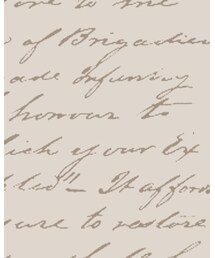 to the
of Brigadier
ade Infantry
honour to
ich your Ex
ded" - It affords
ure to restore